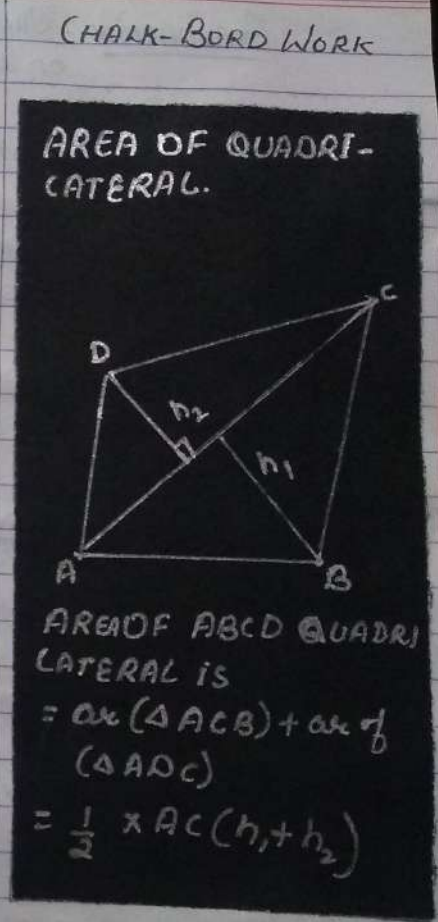 CHALK-BORD WORK
AREA OF QUADRI-
CATERAL.
C
D
h2
h1
A
B
AREA OF ABCD QUADRI
LATERAL is
= ar (△ ACB) + ar of
(△ ADC)
= 1/2 × AC (h₁ + h₂)